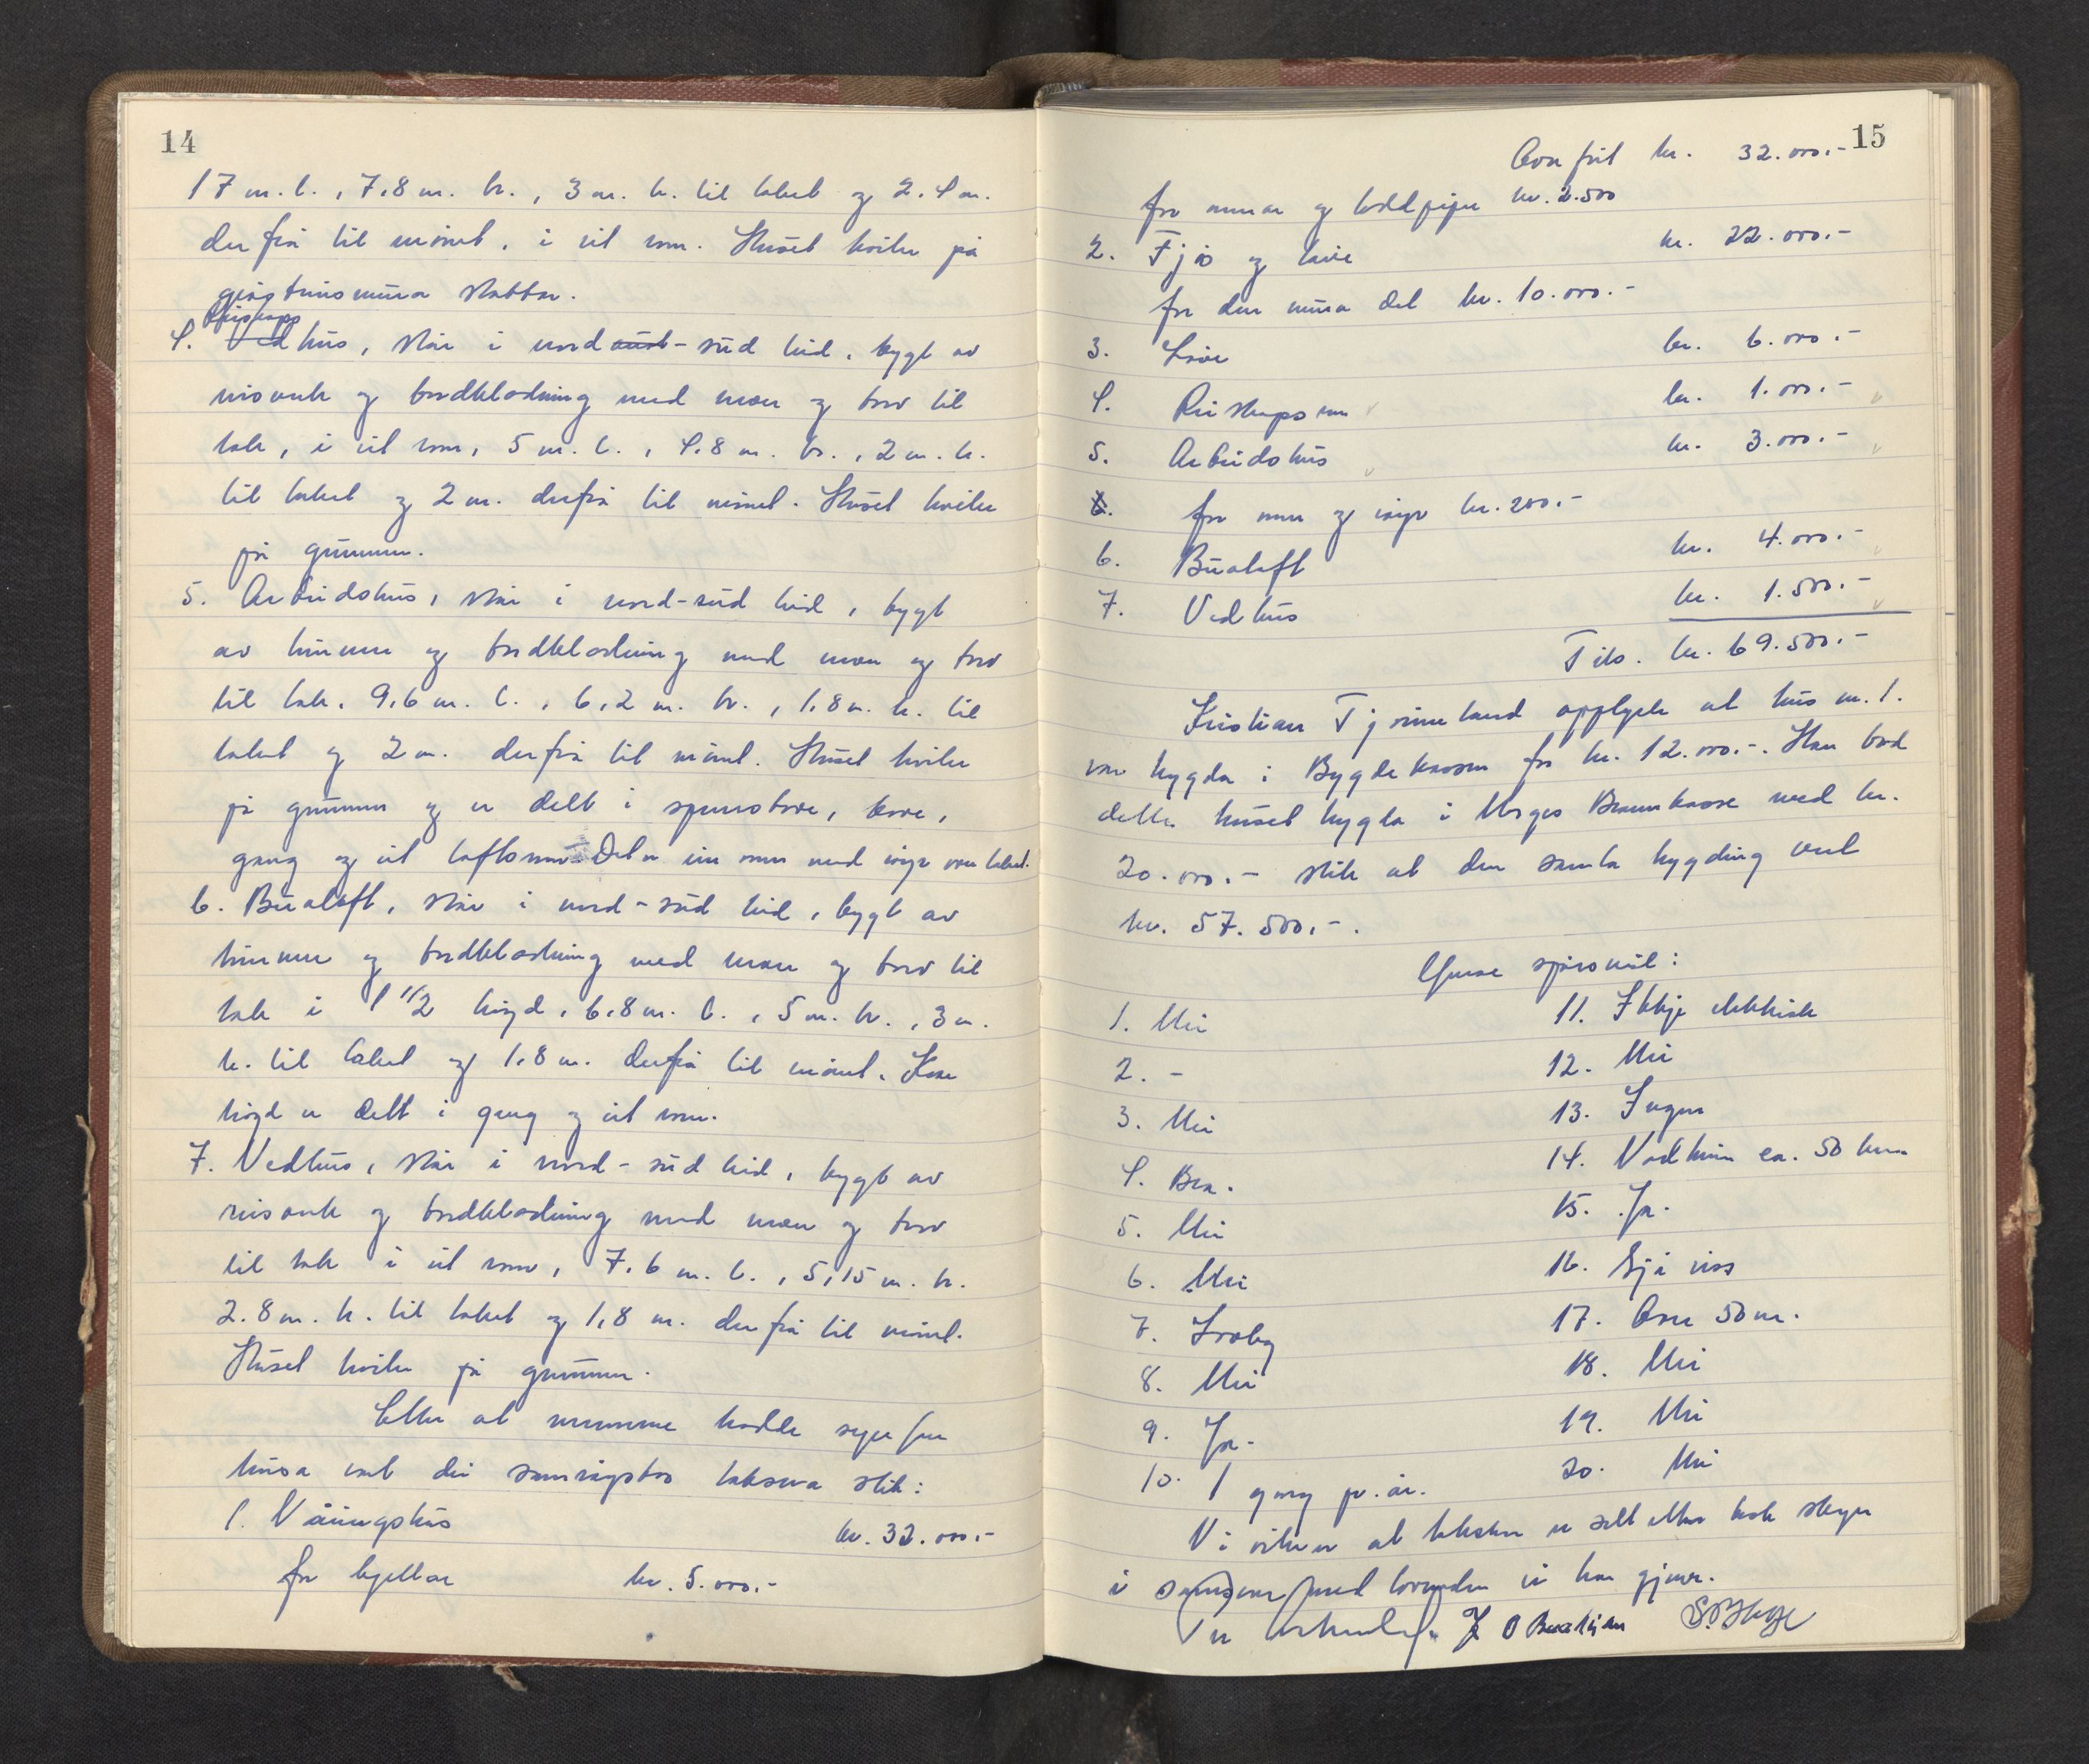 14
17 m. l., 7,8 m. br., 3 m. h. til taket og 2,4 m.
derfrå til mønet, i eit rom. Huset kviler på
gråsteinsmura stabbar.
Reiskapp
4. Vedhus, står i nord aust - sud leid, bygt av
reisverk og bordkledning med never og torv til
tak, i eit rom, 5 m. l., 4,8 m. br., 2 m. h.
til taket og 2 m. derfrå til mønet. Huset kviler
på grunnen.
5. Arbeidshus, står i nord-sud leid, bygt
av timmer og bordkledning med never og torv
til tak, 9,6 m. l., 6,2 m. br., 1,8 m. h. til
taket og 2 m. derfrå til mønet. Huset kviler
på grunnen og er delt i sperrstove, kove,
gang og eit loftsrom. Det er ein mur med røyr over taket.
6. Bualoft, står i nord-sud leid, bygt av
timmer og bordkledning med never og torv til
tak i 1 1/2 høgd, 6,8 m. l., 5 m. br., 3 m.
h. til taket og 1,8 m. derfrå til mønet. Kvar
høgd er delt i gang og eit rom.
7. Vedhus, står i nord-sud leid, bygt av
reisverk og bordkledning med never og torv
til tak i eit rom, 7,6 m. l., 5,15 m. br.
2,8 m. h. til taket og 1,8 m. derfrå til mønet.
Huset kviler på grunnen.
Etter at nemnde hadde synfare
husa vart dei samrøystes taksera slik:
1. Våningshus kr. 32.000.-
for kjellar kr. 5.000.-
15
Overført kr. 32.000.-
for murar og teddpipe kr. 2.500
2. Fjos og løe kr. 22.000.-
for den mura del kr. 10.000.-
3. Løe kr. 6.000.-
4. Reiskapsrom kr. 1.000.-
5. Arbeidshus kr. 3.000.-
6. for mur og røyr kr. 200.-
6. Bualoft kr. 4.000.-
7. Vedhus kr. 1.500.-
Tils. kr. 69.500.-
Kristian Tjønneland opplyste at hus nr. 1.
var trygda i Bygdekassen for kr. 12.000.-. Han bad
dette huset trygda i Norges Brannkasse med kr.
20.000.- slik at den samla trygding vert
kr. 57.500.-.
Ymse spørsmål:
1. Nei
2. -
3. Nei
4. Bra.
5. Nei
6. Nei
7. Ivraby
8. Nei
9. Ja.
10. 1 gong pr. år.
11. Ikkje elektrisk
12. Nei
13. Ingen
14. Vadheim ca. 50 km
15. Ja.
16. Sjå riss
17. Over 50 m.
18. Nei
19. Nei
20. Nei
Vi vitnar at taksten er sett etter beste skyn
i samsvar med lovnaden vi har gjeve.
J O Brekken